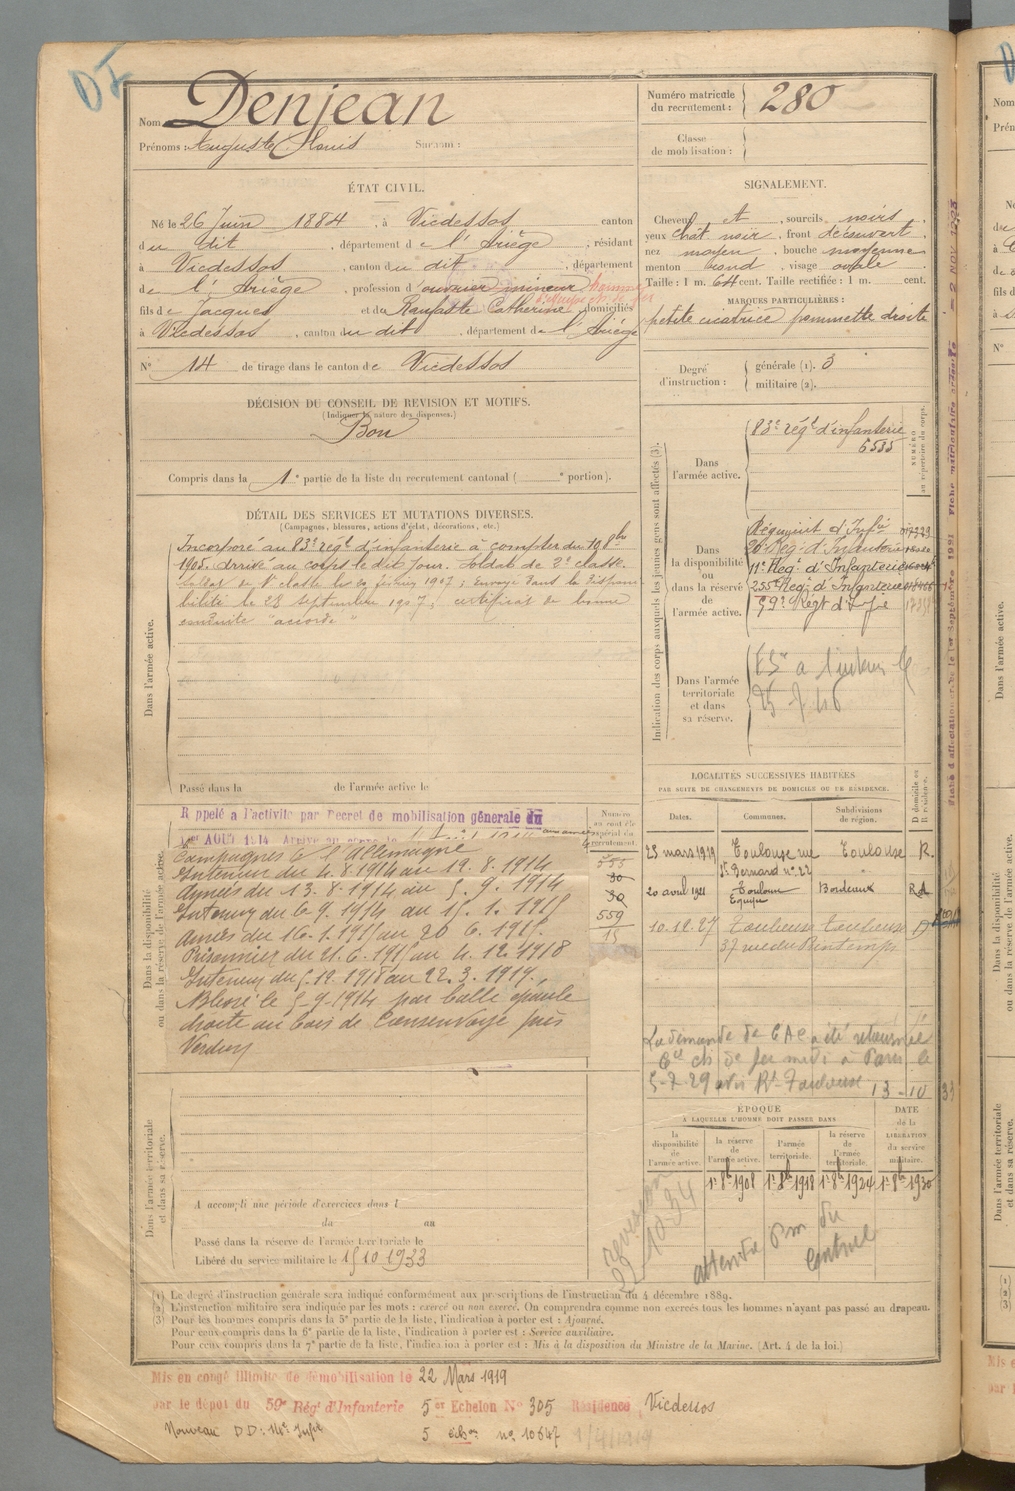 DI
Nom Denjean
Prénoms : Auguste Louis Surnom :
Numéro matricule
du recrutement : 280
Classe
de mobilisation :
ÉTAT CIVIL.
Né le 26 Juin 1884, à Vicdessos canton
du dit, département de l'Ariège, résidant
à Vicdessos, canton du dit, département
de l'Ariège, profession d'ouvrier mineur homme
fils de Jacques et de Raufaste Catherine domiciliés
à Vicdessos, canton du dit, département de l'Ariège
N° 14 de tirage dans le canton de Vicdessos
SIGNALEMENT.
Cheveux et, sourcils noirs,
yeux chât. noir, front découvert,
nez moyen, bouche moyenne
menton rond, visage ovale
Taille : 1 m. 64 cent. Taille rectifiée : 1 m. cent.
MARQUES PARTICULIÈRES :
petite cicatrice pommette droite
Degré
d'instruction :
générale (1). 3
militaire (2).
DÉCISION DU CONSEIL DE REVISION ET MOTIFS.
(Indiquer la nature des dispenses.)
Bon
Compris dans la 1e partie de la liste du recrutement cantonal ( e portion).
DÉTAIL DES SERVICES ET MUTATIONS DIVERSES.
(Campagnes, blessures, actions d'éclat, décorations, etc.)
Dans l'armée active.
Incorporé au 83e régt d'infanterie à compter du 10 8bre
1905. Arrivé au corps le dit jour. Soldat de 2e classe.
Soldat de 1e classe le 20 février 1907 ; Envoyé dans la dispon-
bilité le 28 septembre 1907 ; certificat de bonne
conduite "accordé"
Passé dans la de l'armée active le
Indication des corps auxquels les jeunes gens sont affectés (3).
Dans
l'armée active.
83e régt d'infanterie
6535
NUMÉRO
au répertoire du corps.
Dans
la disponibilité
ou
dans la réserve
de
l'armée active.
Régiment d'Infie
20e Rég. d'Infanterie
11e Rég. d'Infanterie
255e Rég. d'Infanterie
59e Régt d'Infie
Dans l'armée
territoriale
et dans
sa réserve.
LOCALITÉS SUCCESSIVES HABITÉES
PAR SUITE DE CHANGEMENTS DE DOMICILE OU DE RÉSIDENCE.
Dates. Communes. Subdivisions
de région. D domicile ou
R résidence.
23 mars 1919 Toulouse rue Toulouse R.
St Bernard n° 22
20 avril 1921 Bordeaux
10.12.27 Toulouse Toulouse D
37 rue du Printemps
Fiche d'affectation de le 1er Septembre 1921 Fiche matricule
Dans la disponibilité
ou dans la réserve de l'armée active
Rappelé à l'activité par Décret de mobilisation générale du
1er AOUT 1914 Arrivé au corps le
Campagnes C. l'Allemagne
Intérieur du 4.8.1914 au 12.8.1914
Armées du 13.8.1914 au 5.9.1914
Intérieur du 6.9.1914 au 15.1.1915
Armées du 16.1.1915 au 20.6.1915.
Prisonnier du 21.6.1915 au 4.12.1918
Intérieur du 5.12.1918 au 22.3.1919.
Blessé le 5-9-1914 par balle épaule
droite au bois de Consenvoye près
Verdun
Numéro
au contrôle
spécial du
recrutement.
555
30
30
559
15
La demande de CAC a été retournée
Cie ch de fer midi à Paris le
5-7-29 avis Rt Toulouse 13-10 33
ÉPOQUE
À LAQUELLE L'HOMME DOIT PASSER DANS
la
disponibilité
de
l'armée active.
la réserve
de
l'armée active.
l'armée
territoriale.
la réserve
de
l'armée
territoriale.
DATE
de la
LIBÉRATION
du service
militaire.
1er 8bre 1908 1er 8bre 1918 1er 8bre 1924 1er 8bre 1930
revision
22-10-34
attente
du
Dans l'armée territoriale
et dans sa réserve.
A accompli une période d'exercices dans l
du au
Passé dans la réserve de l'armée territoriale le
Libéré du service militaire le 15 10 1933
(1) Le degré d'instruction générale sera indiqué conformément aux prescriptions de l'instruction du 4 décembre 1889.
(2) L'instruction militaire sera indiquée par les mots : exercé ou non exercé. On comprendra comme non exercés tous les hommes n'ayant pas passé au drapeau.
(3) Pour les hommes compris dans la 5e partie de la liste, l'indication à porter est : Ajourné.
Pour ceux compris dans la 6e partie de la liste, l'indication à porter est : Service auxiliaire.
Pour ceux compris dans la 7e partie de la liste, l'indication à porter est : Mis à la disposition du Ministre de la Marine. (Art. 4 de la loi.)
Mis en congé illimité de démobilisation le 22 Mars 1919
par le dépôt du 59e Régt d'Infanterie 5er Echelon N° 305 Résidence Vicdessos
Nouveau DD: 14e Infie 5 n° 10647 1/4/1919